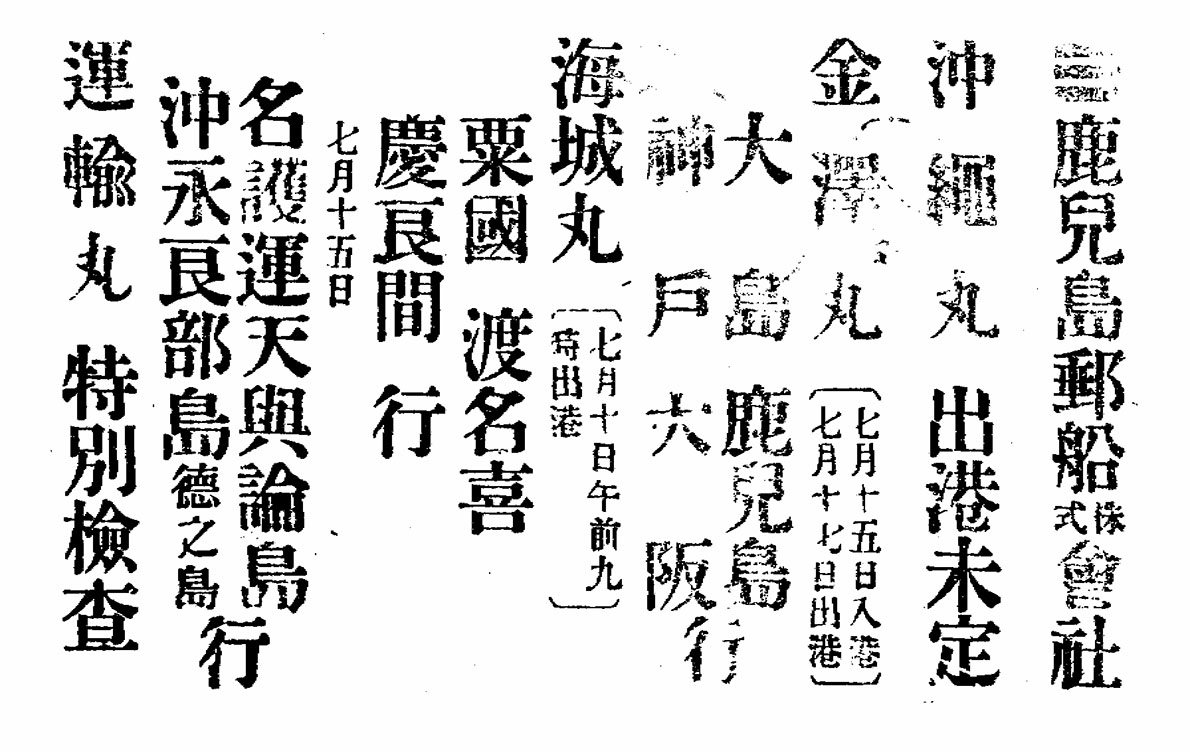 三鹿兒島郵船株式會社
沖繩丸 出港未定
金澤丸 〔七月十五日入港
七月十七日出港〕
大島 鹿兒島
神戶 大阪 行
海城丸 〔七月十日午前九
時出港〕
粟國 渡名喜
慶良間 行
七月十五日
名護運天與論島
沖永良部島德之島 行
運輸丸 特別檢査